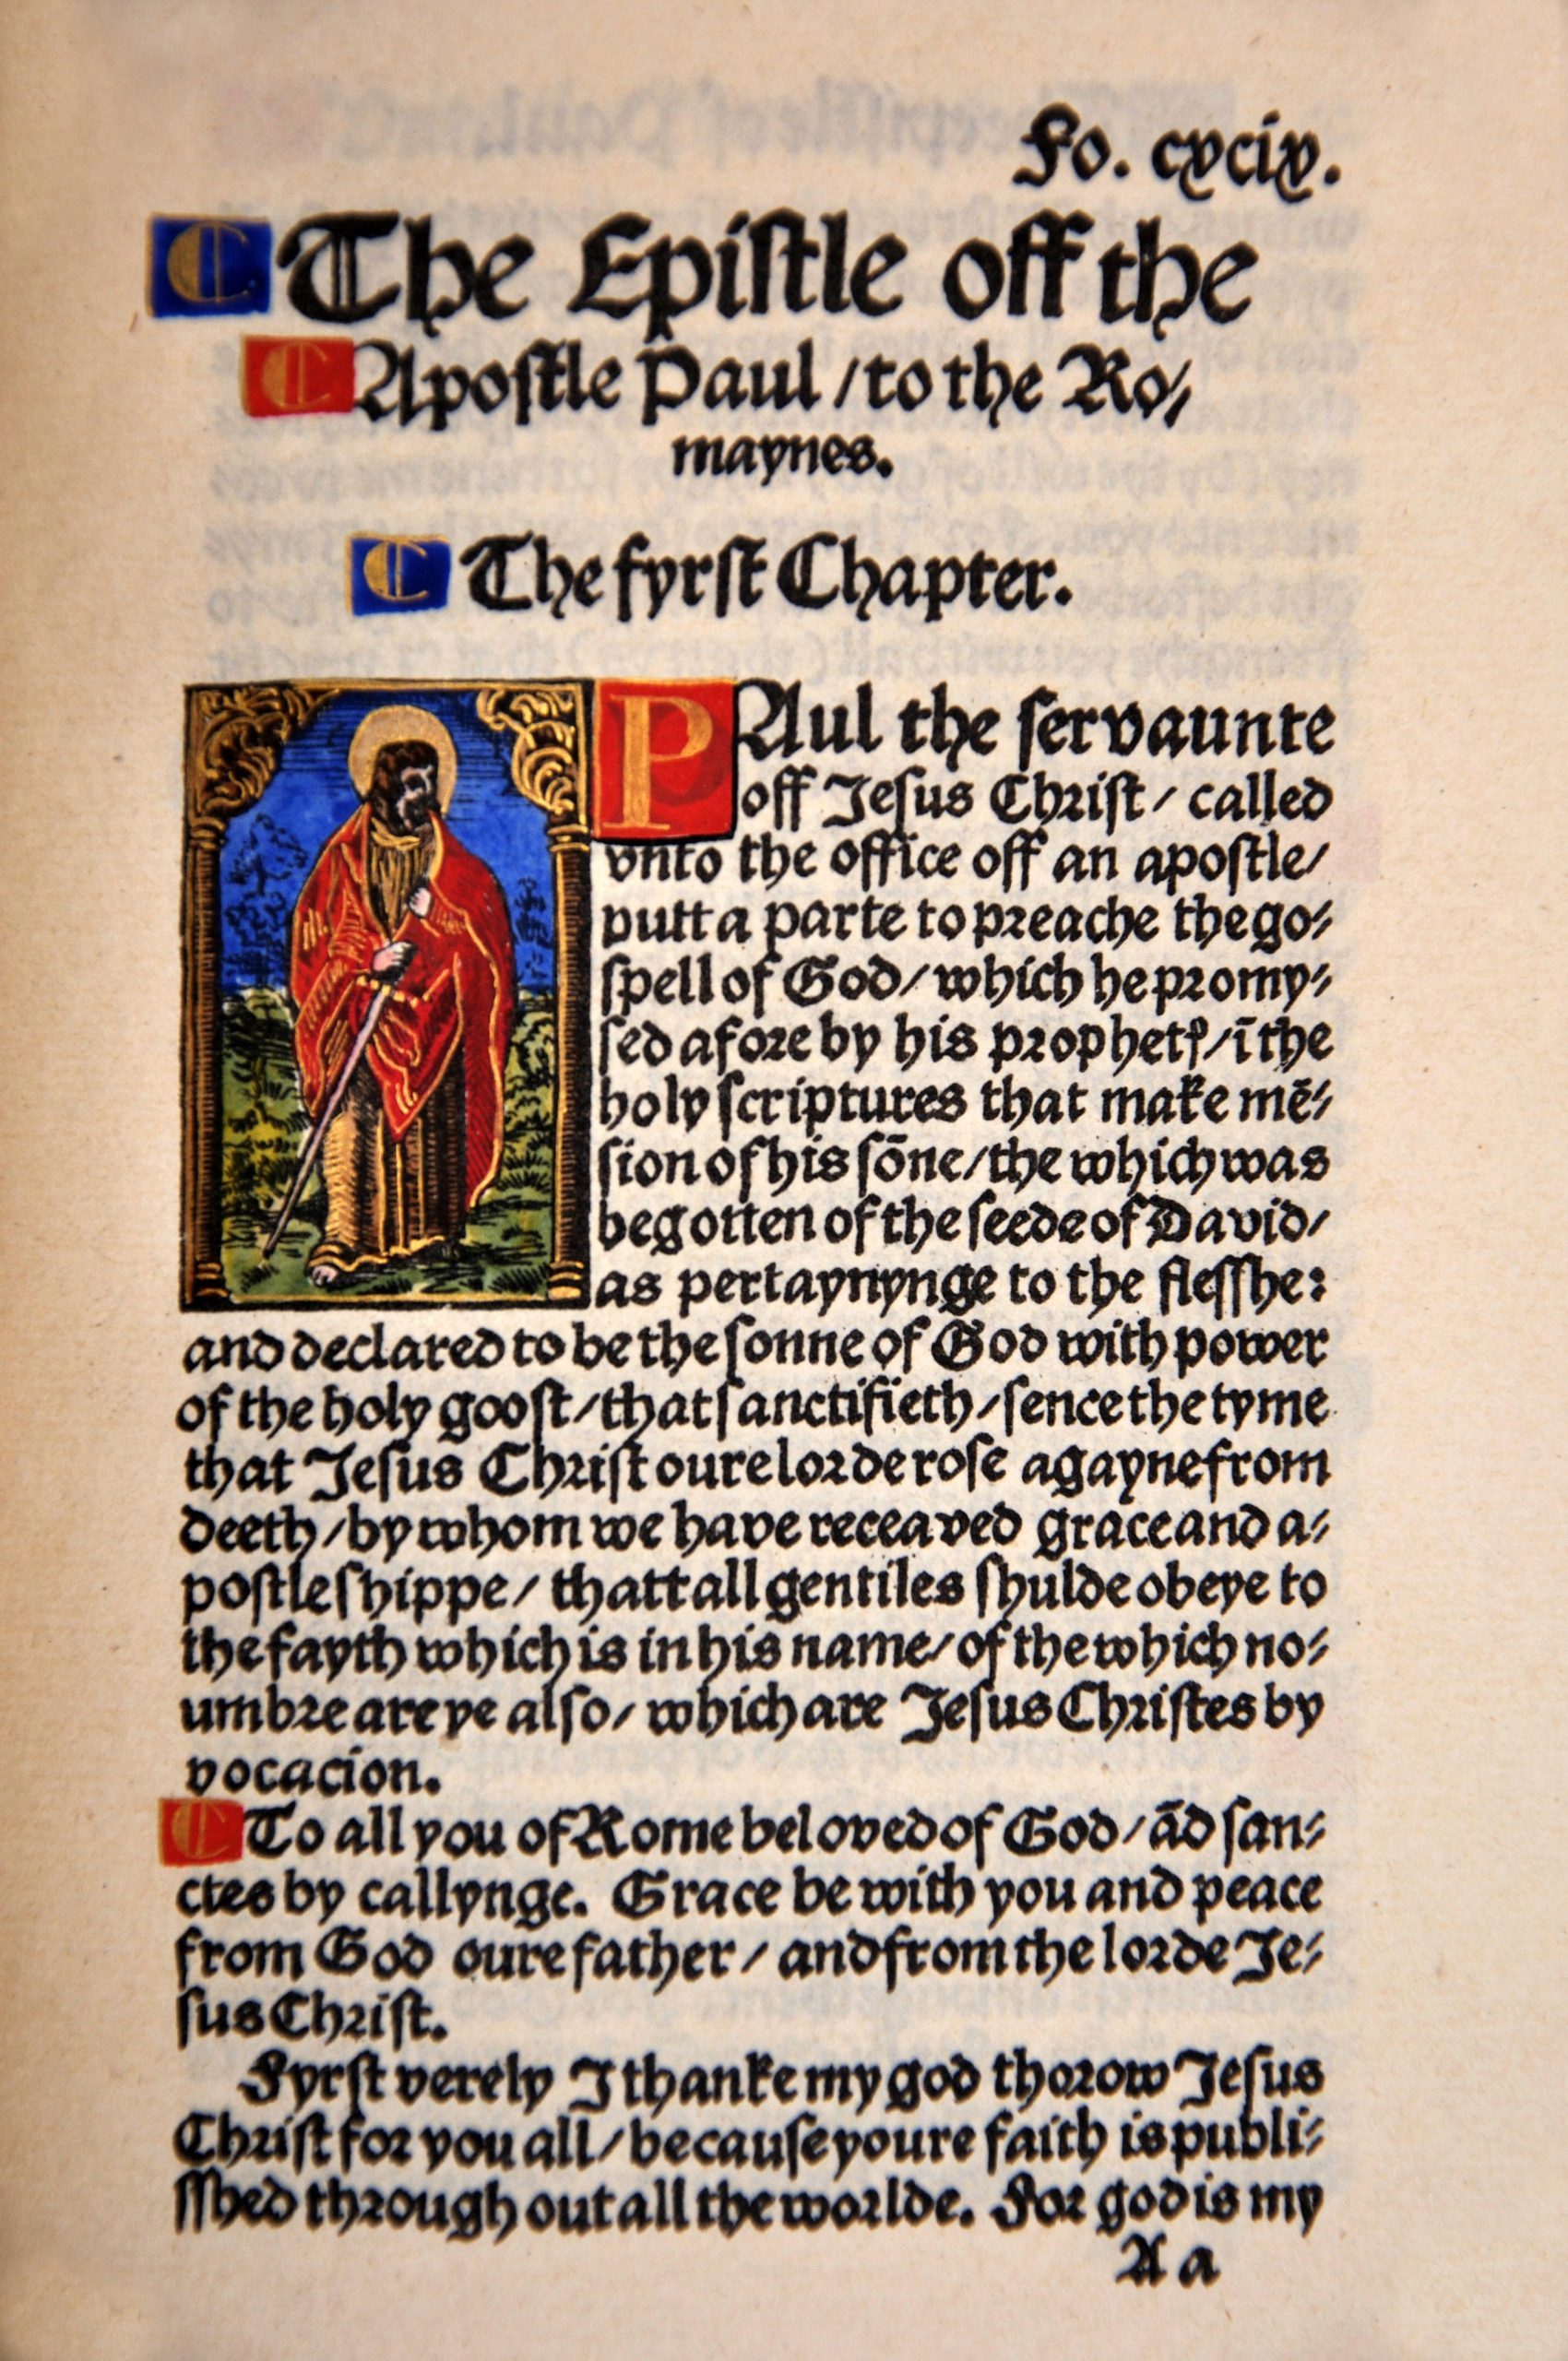 Fo. cxcix.
C The Epistle off the
C Apostle Paul / to the Ro⸗
maynes.
C The fyrst Chapter.
PAul the servaunte
off Jesus Christ / called
vnto the office off an apostle /
putt a parte to preache the go⸗
spell of God / which he promy⸗
sed afore by his prophetꝭ / ī the
holy scriptures that make mē⸗
sion of his sōne / the which was
begotten of the seede of David /
as pertaynynge to the flesshe:
and declared to be the sonne of God with power
of the holy goost / that sanctifieth / sence the tyme
that Jesus Christ oure lorde rose agayne from
deeth / by whom we have receaved grace and a⸗
postleshippe / thatt all gentiles shulde obeye to
the fayth which is in his name / of the which no⸗
umbre are ye also / which are Jesus Christes by
vocacion.
C To all you of Rome beloved of God / ād san⸗
ctes by callynge. Grace be with you and peace
from God oure father / and from the lorde Je⸗
sus Christ.
Fyrst verely I thanke my god thorow Jesus
Christ for you all / because youre faith is publi⸗
sshed through out all the worlde. For god is my
A a